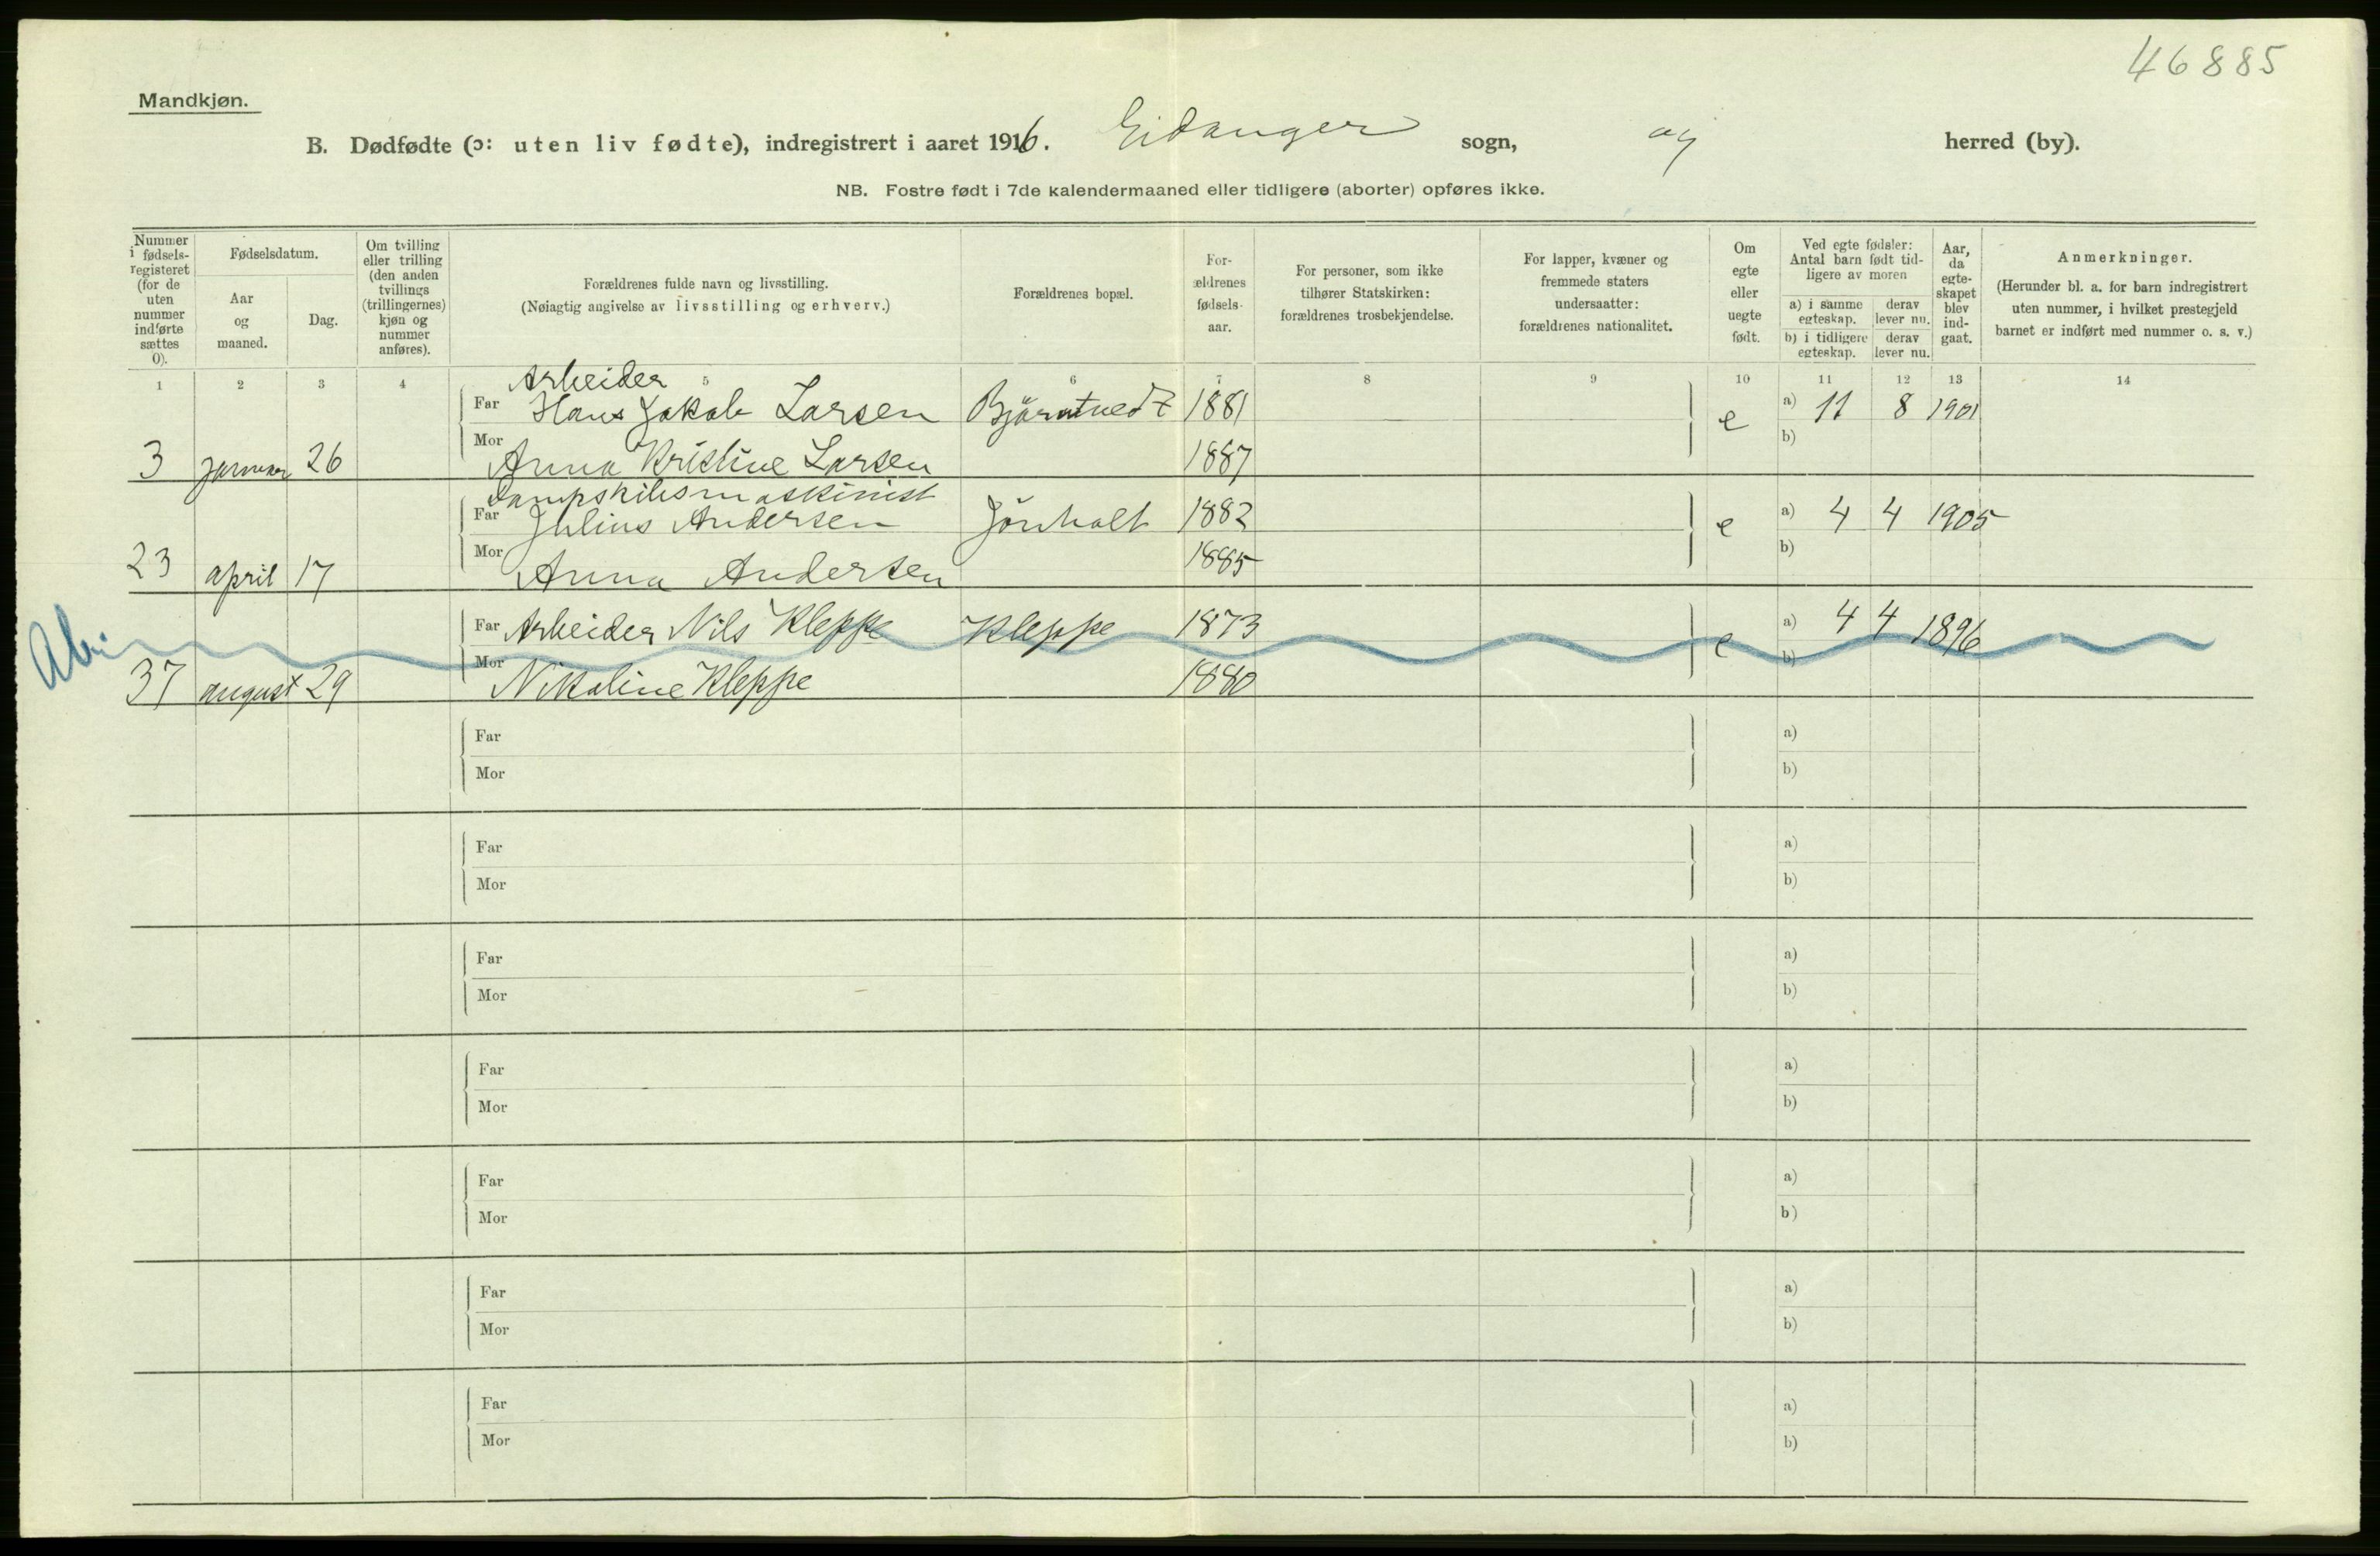 46885
Mandkjøn.
B. Dødfødte (ɔ: uten liv fødte), indregistrert i aaret 1916. Eidanger sogn, og herred (by).
NB. Fostre født i 7de kalendermaaned eller tidligere (aborter) opføres ikke.
Nummer i fødsels-registeret (for de uten nummer indførte sættes 0).
Fødselsdatum.
Aar og maaned.
Dag.
Om tvilling eller trilling (den anden tvillings (trillingernes) kjøn og nummer anføres).
Forældrenes fulde navn og livsstilling.
(Nøiagtig angivelse av livsstilling og erhverv.)
Forældrenes bopæl.
For-ældrenes fødsels-aar.
For personer, som ikke tilhører Statskirken: forældrenes trosbekjendelse.
For lapper, kvæner og fremmede staters undersaatter: forældrenes nationalitet.
Om egte eller uegte født.
Ved egte fødsler: Antal barn født tid-ligere av moren
a) i samme egteskap.
derav lever nu.
b) i tidligere egteskap.
derav lever nu.
Aar, da egte-skapet blev ind-gaat.
Anmerkninger.
(Herunder bl. a. for barn indregistrert uten nummer, i hvilket prestegjeld barnet er indført med nummer o. s. v.)
1 2 3 4 5 6 7 8 9 10 11 12 13 14
Arbeider
Far Hans Jakob Larsen Bjørntvedt 1881 e a) 11 8 1901
3 januar 26 Mor Anna Kristine Larsen 1887 b)
Dampskibsmaskinist
Far Julius Andersen Jönholt 1882 e a) 4 4 1905
23 april 17 Mor Anna Andersen 1885 b)
Far Arbeider Nils Kleppe Kleppe 1873 e a) 4 4 1896
37 august 29 Mor Nikoline Kleppe 1880 b)
Far a)
Mor b)
Far a)
Mor b)
Far a)
Mor b)
Far a)
Mor b)
Far a)
Mor b)
Far a)
Mor b)
Far a)
Mor b)